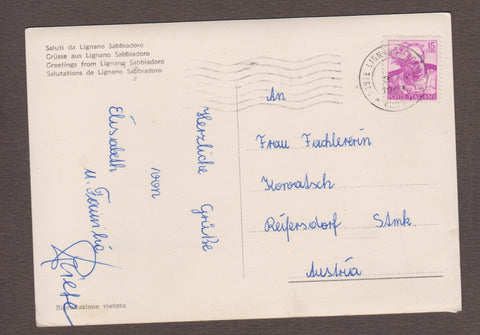 Saluti da Lignano Sabbiadoro
Grüsse aus Lignano Sabbiadoro
Greetings from Lignano Sabbiadoro
Salutations de Lignano Sabbiadoro
Herzliche Grüße
von
Elisabeth
u. Familie
An
Frau Fachlehrerin
Horvatsch
Reifersdorf Stmk
Austria
15
POSTE ITALIANE
POSTE LIGNA
vietata